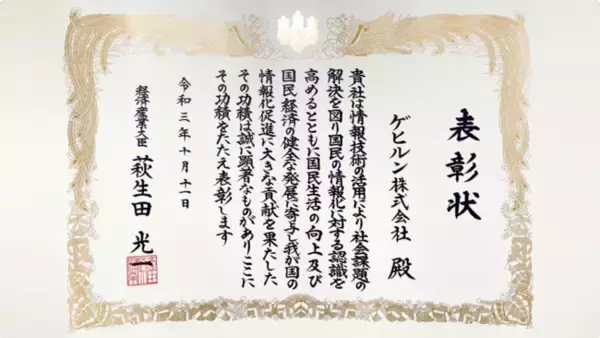 表彰状
ゲヒルン株式会社 殿
貴社は情報技術の活用により社会課題の
解決を図り国民の情報化に対する認識を
高めるとともに国民生活の向上及び
国民経済の健全な発展に寄与し我が国の
情報化促進に大きな貢献を果たした
その功績は誠に顕著なものがありここに
その功績をたたえ表彰します
令和三年十月十一日
経済産業大臣 萩生田 光一